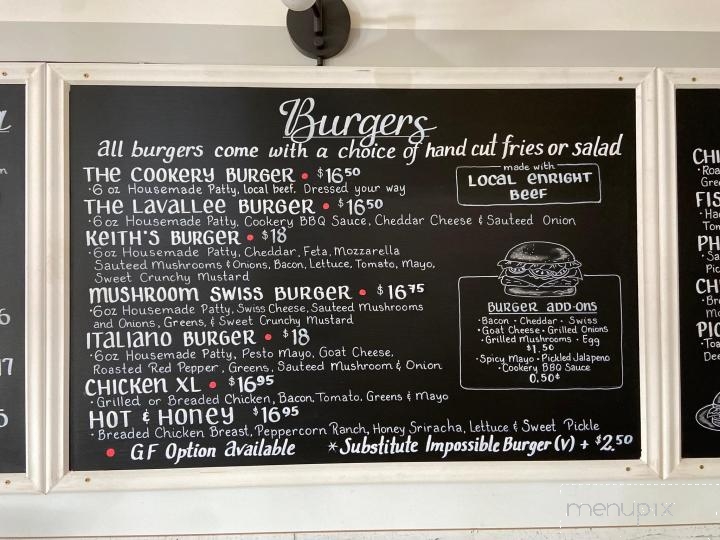 Burgers
all burgers come with a choice of hand cut fries or salad
THE COOKERY BURGER • $16.50
·6 oz Housemade Patty, local beef. Dressed your way
made with
LOCAL ENRIGHT
BEEF
THE LAVALLEE BURGER • $16.50
·6 oz Housemade Patty, Cookery BBQ Sauce, Cheddar Cheese & Sauteed Onion
KEITH'S BURGER • $18
·6oz Housemade Patty, Cheddar, Feta, Mozzarella
Sauteed Mushrooms & Onions, Bacon, Lettuce, Tomato, Mayo,
Sweet Crunchy Mustard
MUSHROOM SWISS BURGER • $16.75
·6oz Housemade Patty, Swiss Cheese, Sauteed Mushrooms
and Onions, Greens, & Sweet Crunchy Mustard
ITALIANO BURGER • $18
·6oz Housemade Patty, Pesto Mayo, Goat Cheese,
Roasted Red Pepper, Greens, Sauteed Mushroom & Onion
CHICKEN XL • $16.95
·Grilled or Breaded Chicken, Bacon, Tomato, Greens & Mayo
HOT & HONEY $16.95
·Breaded Chicken Breast, Peppercorn Ranch, Honey Sriracha, Lettuce & Sweet Pickle
• GF Option available *Substitute Impossible Burger (V) + $2.50
BURGER ADD-ONS
·Bacon · Cheddar · Swiss
·Goat Cheese · Grilled Onions
·Grilled Mushrooms · Egg
$1.50
·Spicy Mayo · Pickled Jalapeno
·Cookery BBQ Sauce
0.50¢
menupix